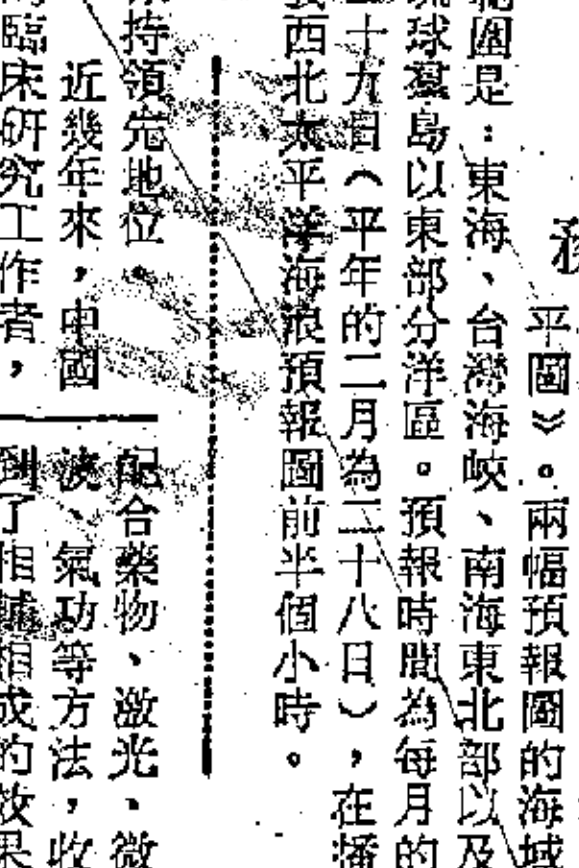 平圖》。兩幅預報圖的海域
圍是:東海、台灣海峽、南海東北部以及
琉球羣島以東部分洋區。預報時間為每月的
十九日(平年的二月為二十八日),在播
發西北太平洋海浪預報圖前半個小時。
持領先地位。
近幾年來,中國
臨床研究工作者,
配合藥物、激光、微
波、氣功等方法,收
到了相輔相成的效果